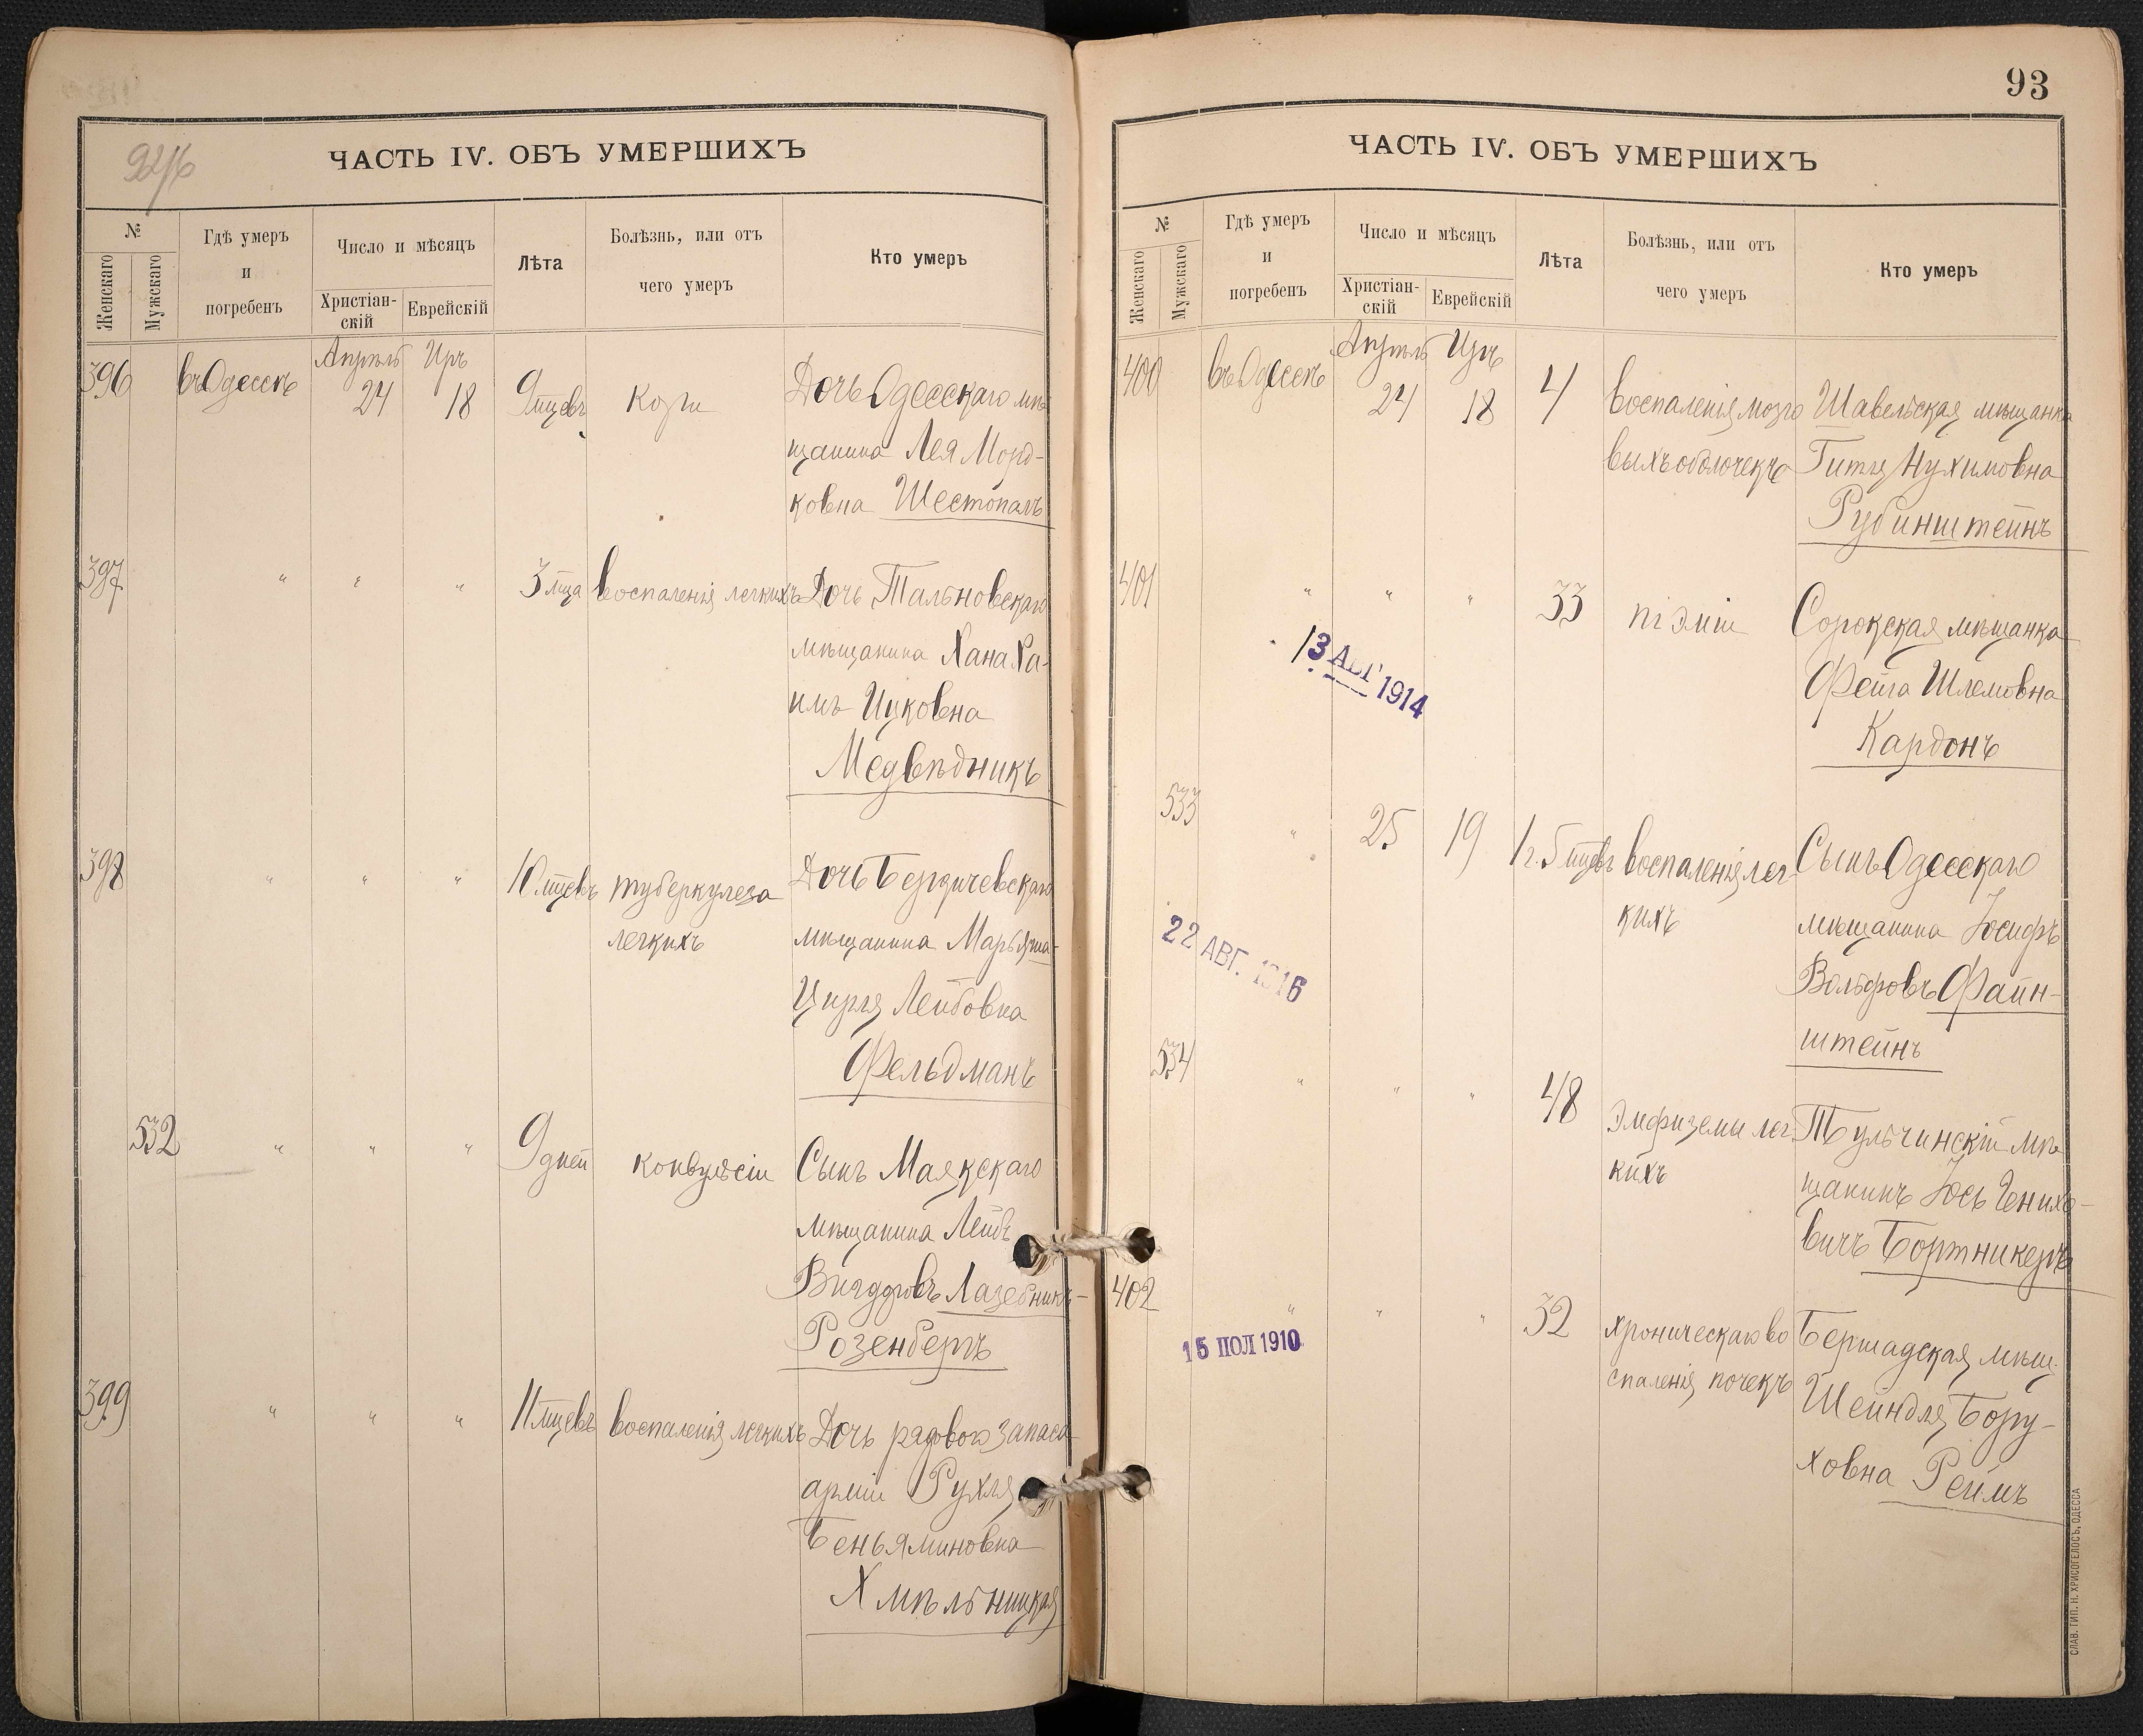 92/6
ЧАСТЬ IV. ОБЪ УМЕРШИХЪ
№
Женскаго
Мужскаго
Гдѣ умеръ
и
погребенъ
Число и мѣсяцъ
Христіан-
скій
Еврейскій
Лѣта
Болѣзнь, или отъ
чего умеръ
Кто умеръ
396
въ Одессѣ
Апрѣль
24
Иръ
18
9 мцевъ
кори
Дочь Одесскаго мѣ
щанина Лея Морд-
ковна Шестопалъ
397
" " "
3 мца
воспаленія легкихъ
Дочь Тальновскаго
мѣщанина Хана Ха-
имъ Ицковна
Медвѣдникъ
398
" " "
10 мцевъ
туберкулеза
легкихъ
Дочь Бердичевскаго
мѣщанина Марьяша-
Цирля Лейбовна
Фельдманъ
532
" " "
9 дней
конвульсіи
Сынъ Маякскаго
мѣщанина Лейбъ
Вигдоровъ Лазебникъ-
Розенбергъ
399
" " "
11 мцевъ
воспаленія легкихъ
Дочь рядового запаса
арміи Рухля
Беньяминовна
Хмѣльницкая
93
ЧАСТЬ IV. ОБЪ УМЕРШИХЪ
№
Женскаго
Мужскаго
Гдѣ умеръ
и
погребенъ
Число и мѣсяцъ
Христіан-
скій
Еврейскій
Лѣта
Болѣзнь, или отъ
чего умеръ
Кто умеръ
400
въ Одессѣ
Апрѣль
24
Иръ
18
4
воспаленія мозго
выхъ оболочекъ
Шавельская мѣщанка
Гитля Нухимовна
Рубинштейнъ
401
" " "
33
піэміи
Сорокская мѣщанка
Фейга Шлемовна
Кардонъ
13 АВГ 1914
533
"
25
19
1 г. 5 мцевъ
воспаленія лег-
кихъ
Сынъ Одесскаго
мѣщанина Іосифъ
Вольфовъ Файн-
штейнъ
22 АВГ. 1916
534
" " "
48
эмфиземы лег-
кихъ
Тульчинскій мѣ
щанинъ Іось Генихо-
вичъ Бортникеръ
402
" " "
32
хроническаго во
спаленія почекъ
Бершадская мѣщ.
Шейндля Бору-
ховна Реймъ
15 ІЮЛ 1910
СЛАВ. ТИП. Н. ХРИСОГЕЛОСЪ, ОДЕССА